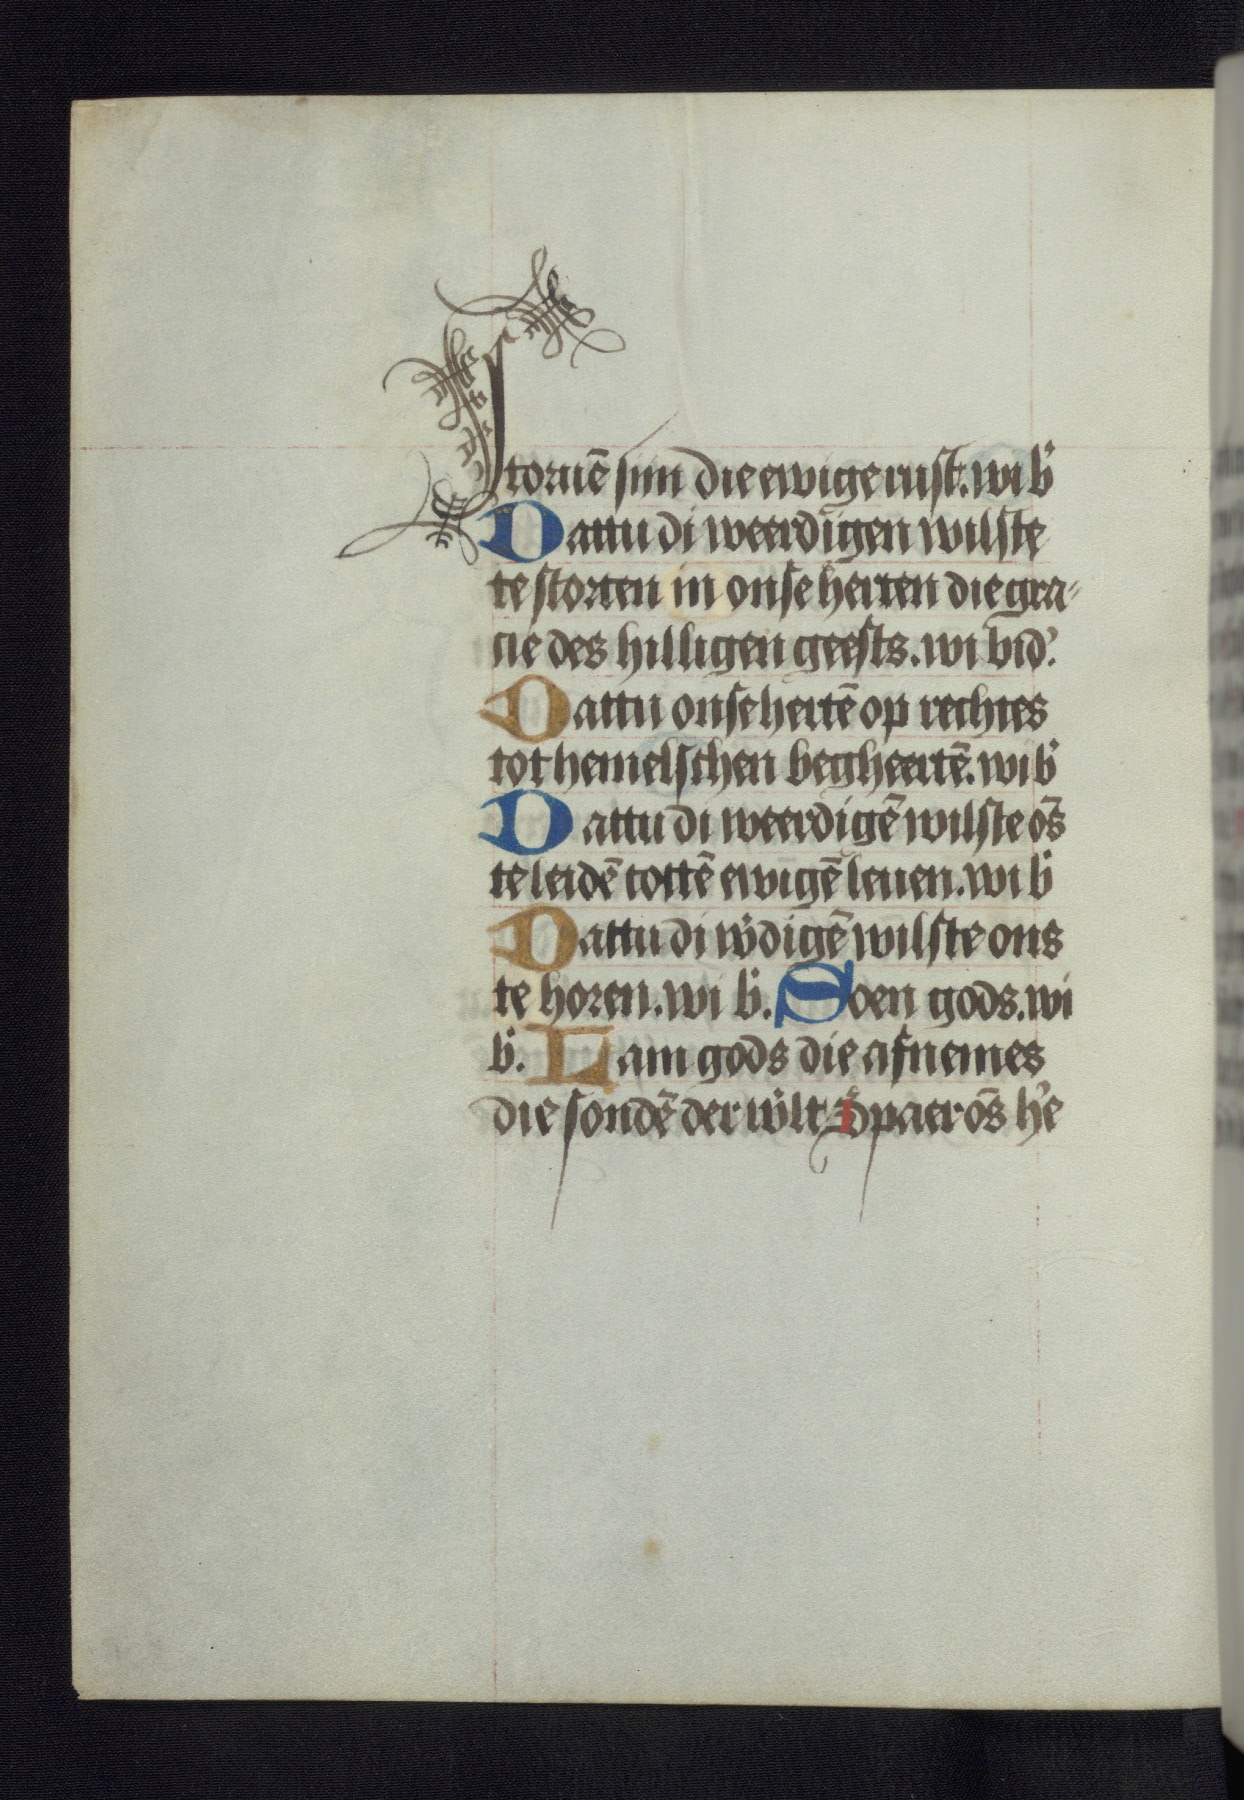 storuē sijn die ewige rust. wi b̉
Dattu di weerdigen wilste
te storten in onse herten die gra-
cie des hilligen geests. wi bid̉.
Dattu onse hertē op rechtes
tot hemelschen begheertē. wi b̉
Dattu di weerdigē wilste ōs
te leidē tottē ewigē leuen. wi b̉
Dattu di w̉digē wilste ons
te horen. wi b̉. Soen gods. wi
b̉. Lam gods die afnemes
die sondē der w̉lt Spaer ōs h̉e